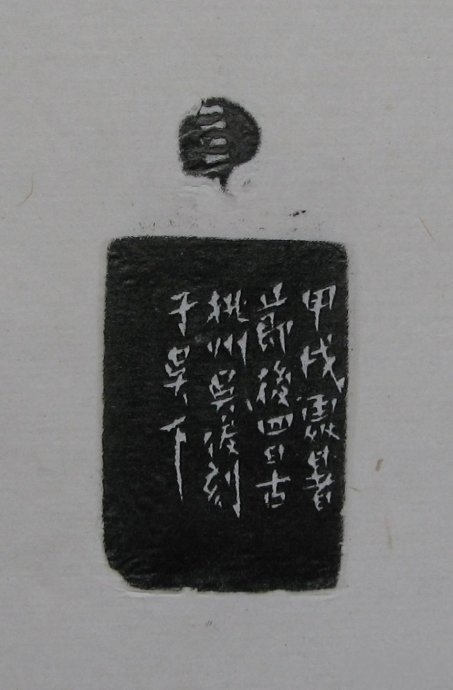 甲戌處暑
節後四日古
桃州吳浚刻
于吳下